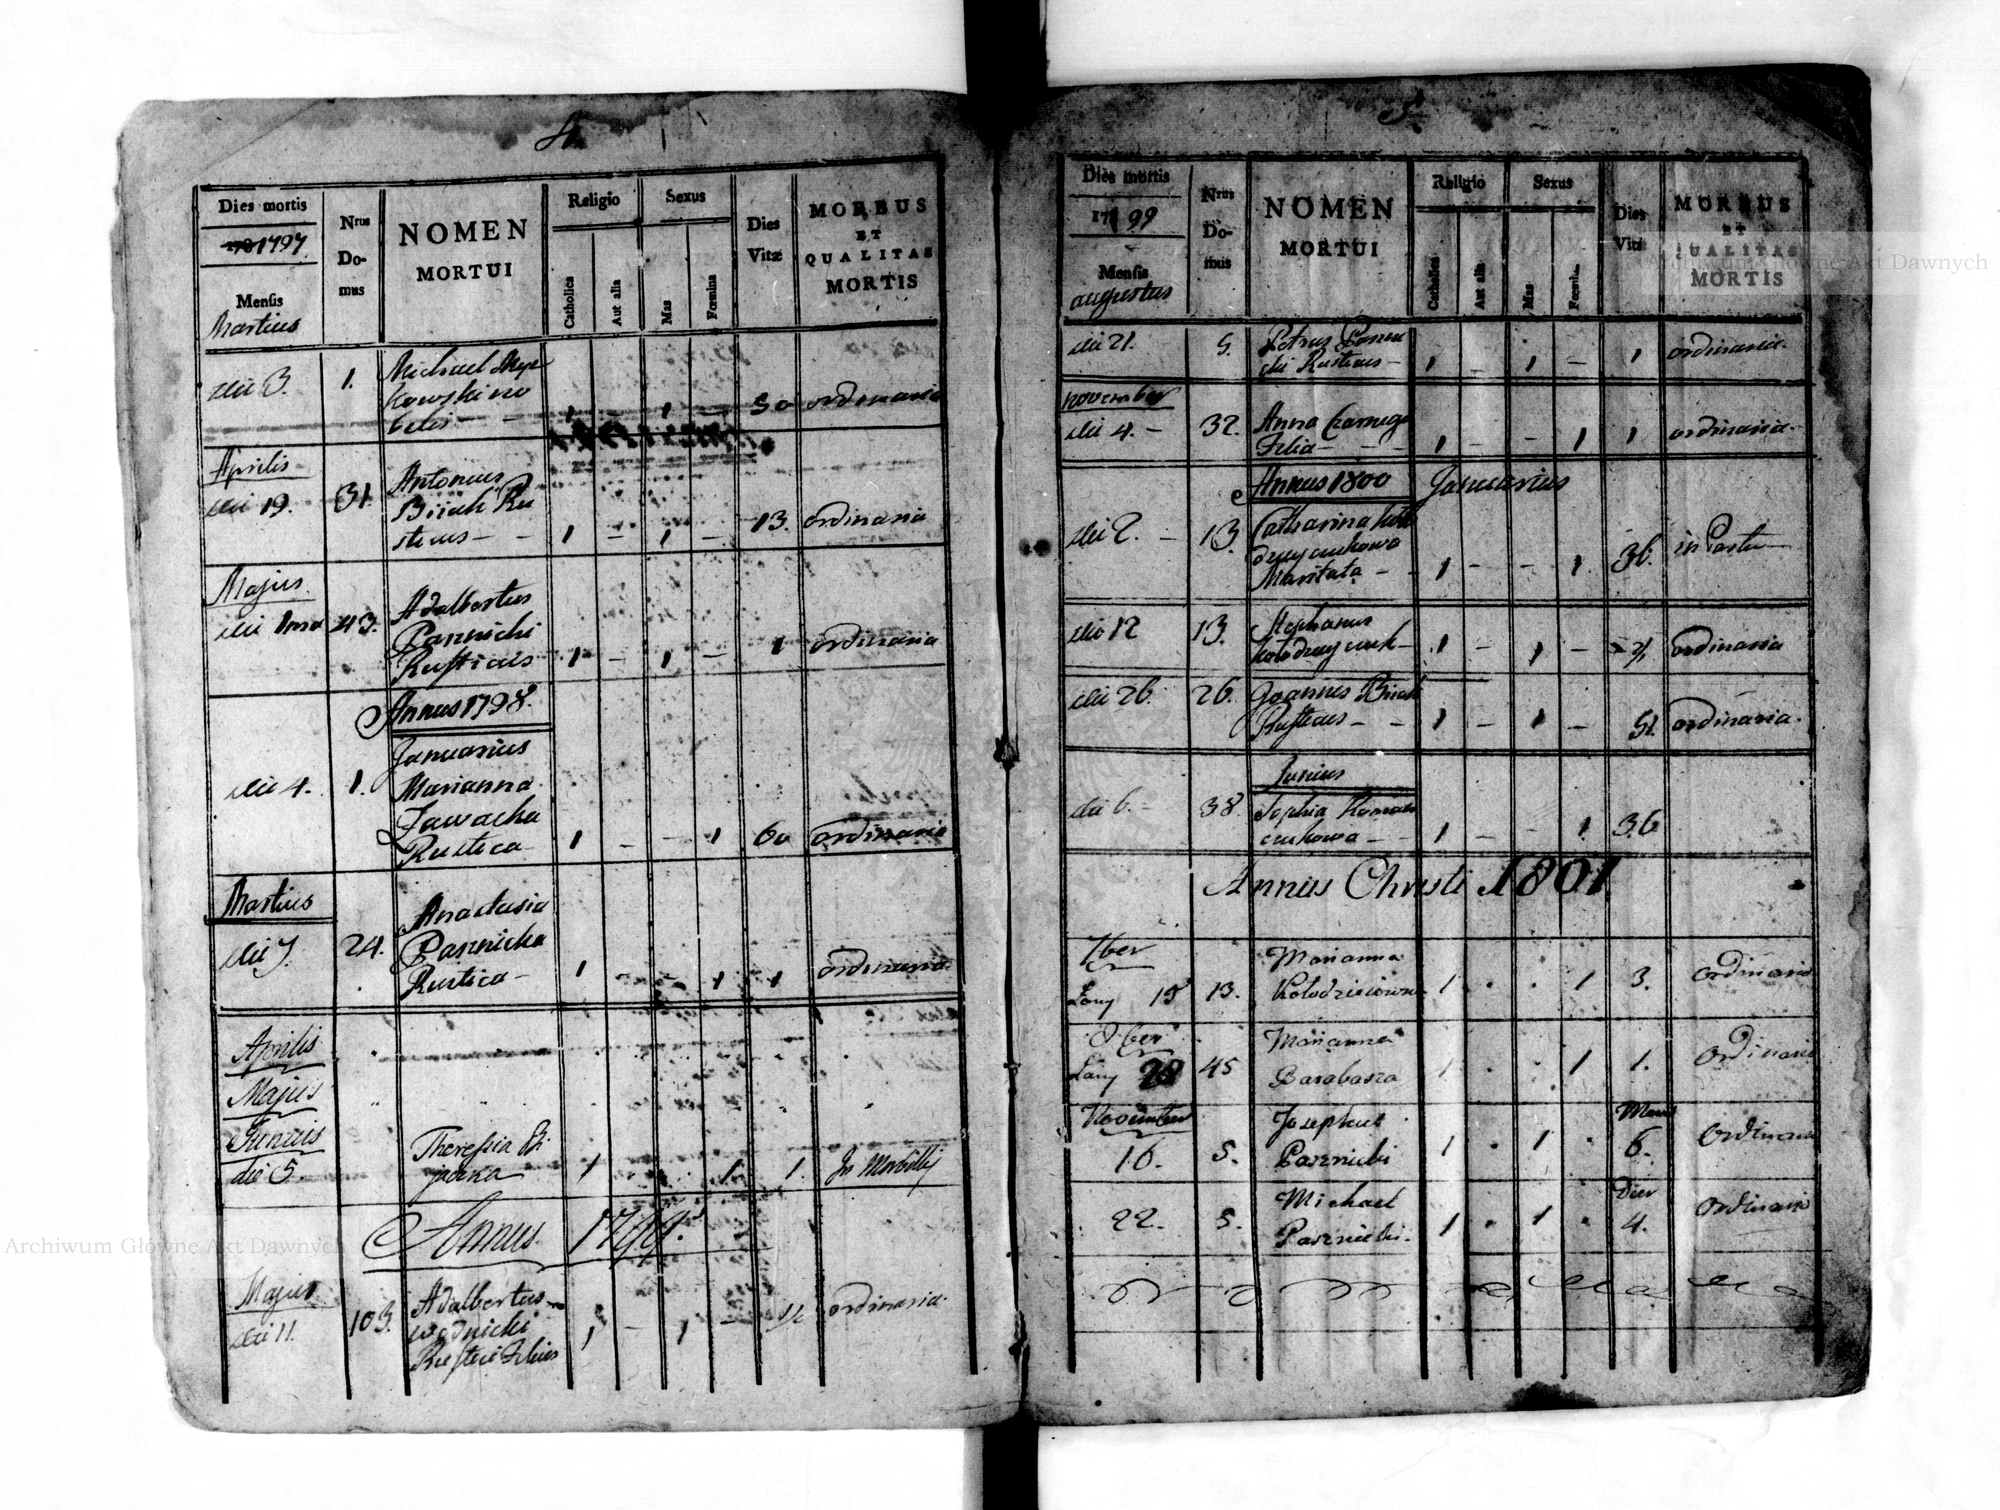 4
Dies mortis
1797
Mensis
Martius
Nrus
Do-
mus
NOMEN
MORTUI
Religio
Catholica
Aut alia
Sexus
Mas
Fœmina
Dies
Vitæ
MORBUS
ET
QUALITAS
MORTIS
die 3. 1. Michael
kowski no
bilis - 1 - 1 - 50 ordinaria
Aprilis
die 19. 31. Antonius
Biiak Ru
sticus - - 1 - 1 - 13. ordinaria
Majus
die 1ma 43. Adalbertus
Paznicki
Rusticus 1 - 1 - 1 ordinaria
Annus 1798.
Januarius
die 4. 1. Marianna
Zawacka
Rustica 1 - - 1 60 ordinaria
Martius
die 7. 24. Anastasia
Paznicka
Rustica - 1 - - 1 1 ordinaria
Aprilis
Majus
Junius
die 5 Theressia Bi
jacka 1 1 1. In Morbilly
Annus 1799.
Majus
die 11. 103. Adalbertus
wodnicki
Rustici Filius 1 - 1 - 1/2 ordinaria.
5
Dies mortis
1799
Mensis
augustus
Nrus
Do-
mus
NOMEN
MORTUI
Religio
Catholica
Aut alia
Sexus
Mas
Fœmina
Dies
Vitæ
MORBUS
ET
QUALITAS
MORTIS
die 21. 5. Petrus
Rusticus - 1 - 1 - 1 ordinaria.
november
die 4. - 32. Anna
Filia - 1 - - 1 1 ordinaria-
Annus 1800 Januarius
die 2. - 13. Catharina Koło
dzieyczukowa
Maritata - - 1 - - 1 36. in Partu
die 12 13. Stephanus
kołodzieyczuk - 1 - 1 - ordinaria
die 26. 26. Joannes Biiak
Rusticus - - 1 - 1 - 51. ordinaria.
Junius
die 6. - 38. Sophia
czukowa - 1 - - 1 36
Annus Christi 1801
7ber
Łany 15 13. Marianna
Kołodzieiówna 1 . . 1 3. Ordinaria
8ber
Łany 28 45 Marianna
Barabasza 1 . . 1 1. Ordinaria
November
16. 5. Josephus
Paznicki 1 . 1 . Mens
6. Ordinaria
22. 5. Michael
Paznicki. 1 . 1 . Dier
4. Ordinaria
Archiwum Główne Akt Dawnych
Archiwum Główne Akt Dawnych